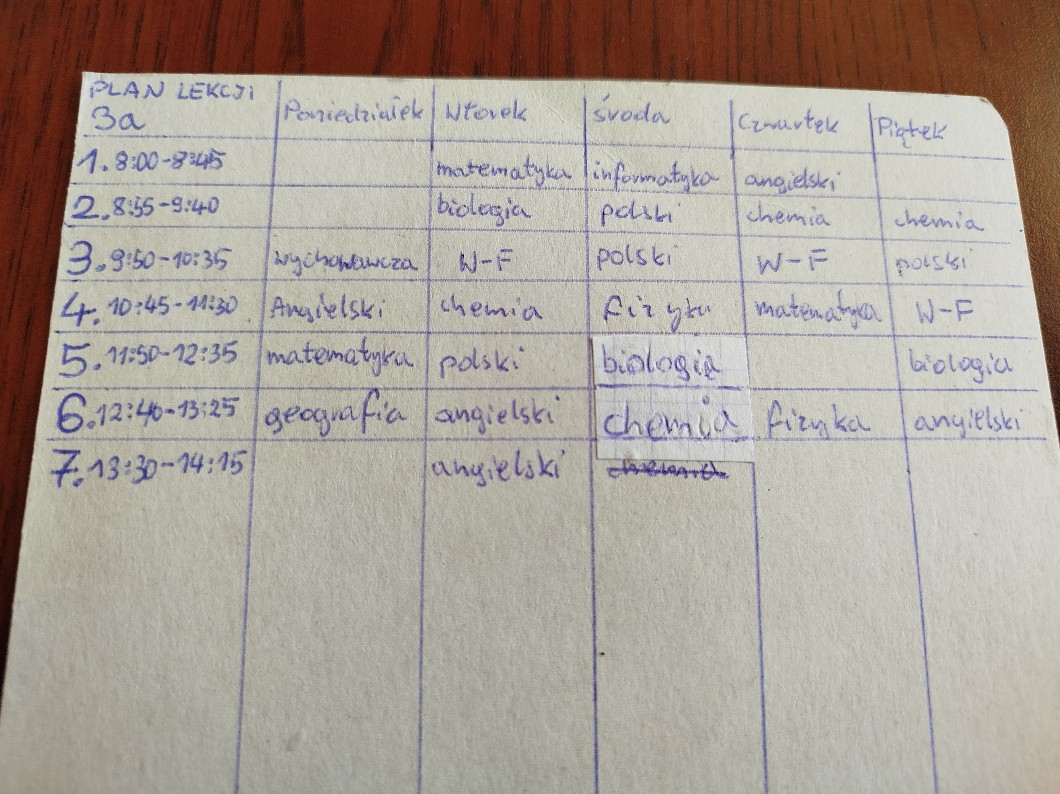 PLAN LEKCJI
3a Poniedziałek Wtorek Środa Czwartek Piątek
1. 8:00-8:45 matematyka informatyka angielski
2. 8:55-9:40 biologia polski chemia chemia
3. 9:50-10:35 wychowawcza W-F polski W-F polski
4. 10:45-11:30 Angielski chemia fizyka matematyka W-F
5. 11:50-12:35 matematyka polski biologia biologia
6. 12:40-13:25 geografia angielski chemia fizyka angielski
7. 13:30-14:15 angielski chemia